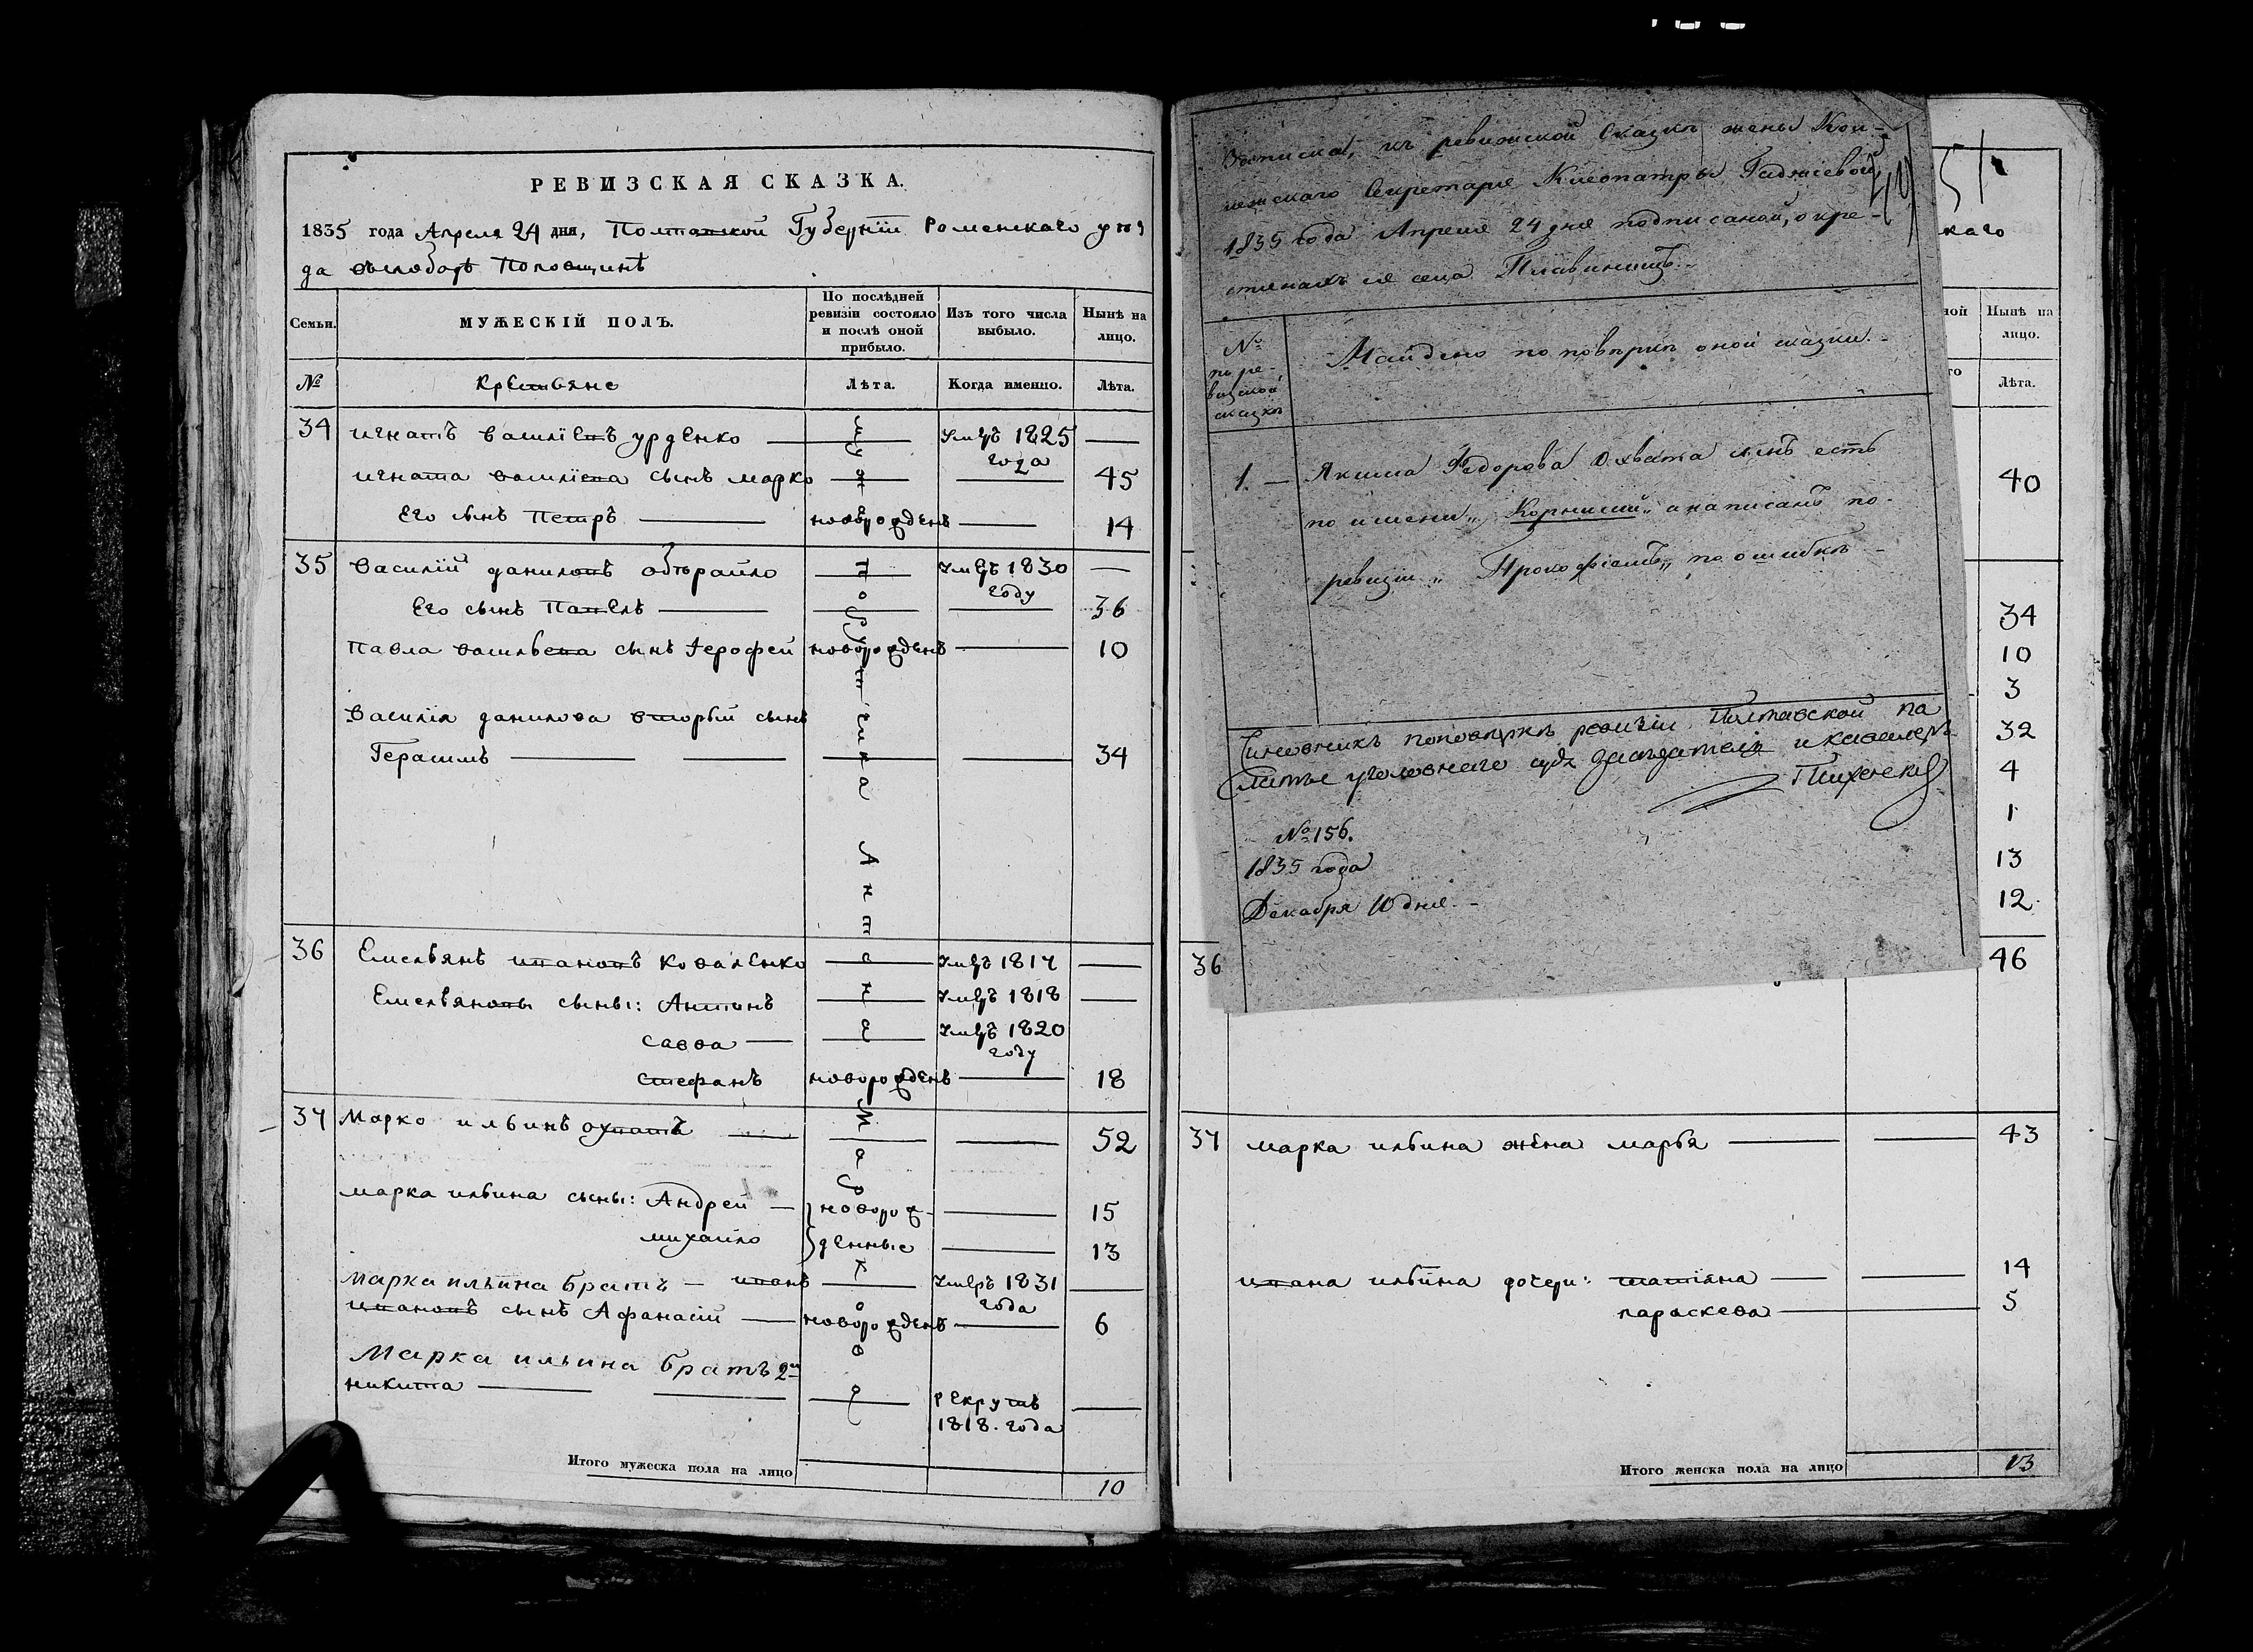 РЕВИЗСКАЯ СКАЗКА.
1835 года Апреля 24 дня, Полтавской Губернїи Роменскаго уѣз
да въслободѣ Половщинѣ
Семьи.
МУЖЕСКІЙ ПОЛЪ.
По послѣдней ревизіи состояло и послѣ оной прибыло.
Изъ того числа выбыло.
Нынѣ на лицо.
№
крестьяне
Лѣта.
Когда именно.
Лѣта.
34 игнатъ василїевъ урденко — умеръ 1825 года —
игната василїева сынъ марко — — 45
его сынъ Петръ — новорожденъ — 14
35 Василїй даниловъ — умеръ 1830 году —
Его сынъ Павелъ — — 36
Павла васильева сынъ Іерофей новорожденъ — 10
Василїя данилова вторый сынъ
Герасимъ — — 34
36 Емельянъ ивановъ коваленко — умеръ 1817 —
Емельяновы сыны: Антонъ — умеръ 1818 —
савва — умеръ 1820 году
стефанъ новорожденъ — 18
37 Марко ильинъ охватъ — — 52
марка ильина сыны: Андрей — новорож- — 15
михайло денные — 13
марка ильина братъ — иванъ — умеръ 1831 года —
ивановъ сынъ Афанасїй — новорожденъ — 6
Марка ильина братъ 2й
никита — рекрутъ 1818. года —
Итого мужеска пола на лицо 10
Записка, къ ревизской сказкѣ жены Кол-
лежскаго Секретаря Клеопатры
1835 года Апреля 24 дня подписаной, о кре-
стянахъ ея села
№ по ре-
визской
сказкѣ
Найдено по повѣркѣ оной сказки. —
1. — Якима Федорова Охвата сынъ есть
по имени „ Корнилий „ а написанъ по
ревизіи „ Прокофіемъ „ по ошибкѣ —
Чиновникъ поповѣркѣ ревизіи Полтавской па
латы уголовнаго суда засѣдатель и кавалеръ
№ 156.
1835 года
Декабря 10 дня. —
51
каго
Нынѣ на лицо.
Лѣта.
40
34
10
3
32
4
1
13
12
36 46
37 марка ильина жена марья — — 43
ивана ильина дочери: татїяна — — 14
параскева — 5
Итого женска пола на лицо 13